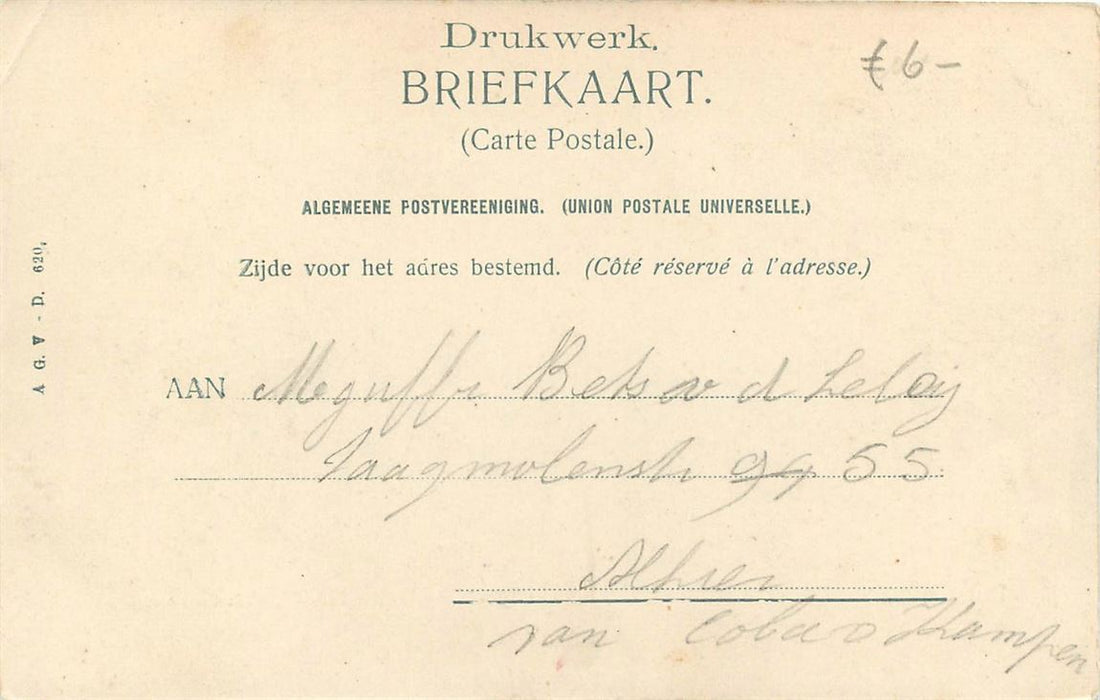 Drukwerk.
€ 6-
BRIEFKAART.
(Carte Postale.)
ALGEMEENE POSTVEREENIGING. (UNION POSTALE UNIVERSELLE.)
Zijde voor het adres bestemd. (Côté réservé à l'adresse.)
A G. V - D. 620.
AAN Mejuffr Bets v d
Zaagmolenstr 94 55
Alhier
van Kampen